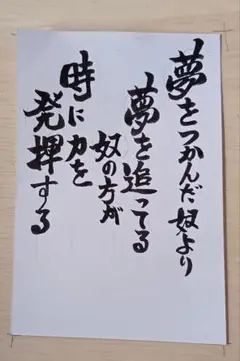 夢をつかんだ奴より
夢を追ってる
奴の方が
時に力を
発揮する